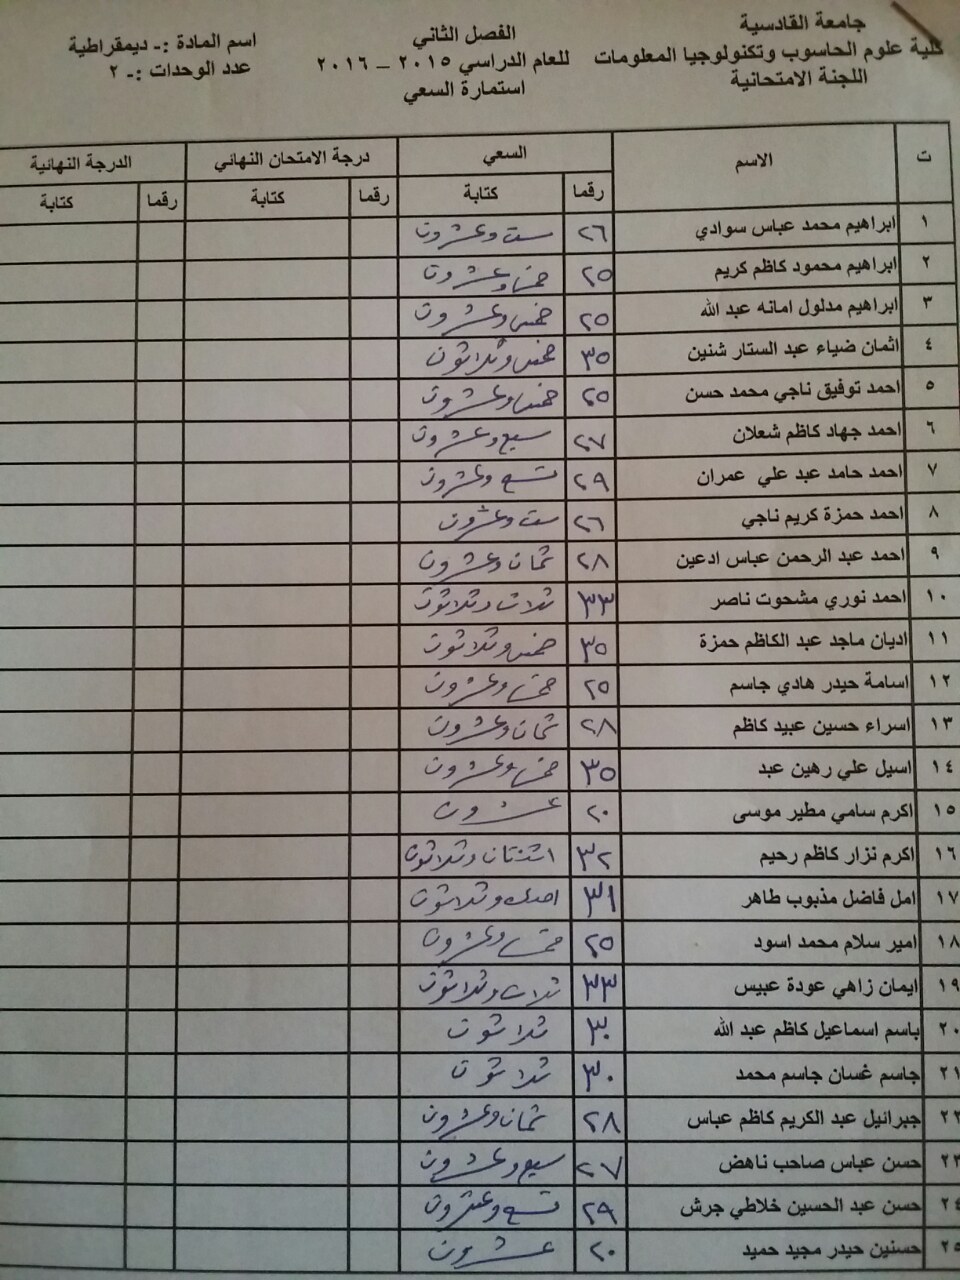 جامعة القادسية
كلية علوم الحاسوب وتكنولوجيا المعلومات
اللجنة الامتحانية
الفصل الثاني
للعام الدراسي ٢٠١٥ – ٢٠١٦
استمارة السعي
اسم المادة :- ديمقراطية
عدد الوحدات :- ٢
ت الاسم السعي درجة الامتحان النهائي الدرجة النهائية
رقما كتابة رقما كتابة رقما كتابة
١ ابراهيم محمد عباس سوادي ٢٦ ست وعشرون
٢ ابراهيم محمود كاظم كريم ٢٥ خمس وعشرون
٣ ابراهيم مدلول امانه عبد الله ٢٥ خمس وعشرون
٤ اثمان ضياء عبد الستار شنين ٣٥ خمس وثلاثون
٥ احمد توفيق ناجي محمد حسن ٢٥ خمس وعشرون
٦ احمد جهاد كاظم شعلان ٢٧ سبع وعشرون
٧ احمد حامد عبد علي عمران ٢٩ تسع وعشرون
٨ احمد حمزة كريم ناجي ٢٦ ست وعشرون
٩ احمد عبد الرحمن عباس ادعين ٢٨ ثمان وعشرون
١٠ احمد نوري مشحوت ناصر ٣٣ ثلاث وثلاثون
١١ اديان ماجد عبد الكاظم حمزة ٣٥ خمس وثلاثون
١٢ اسامة حيدر هادي جاسم ٢٥ خمس وعشرون
١٣ اسراء حسين عبيد كاظم ٢٨ ثمان وعشرون
١٤ اسيل علي رهين عبد ٣٥ خمس وعشرون
١٥ اكرم سامي مطير موسى ٢٠ عشرون
١٦ اكرم نزار كاظم رحيم ٣٢ اثنتان وثلاثون
١٧ امل فاضل مذبوب طاهر ٣١ احدى وثلاثون
١٨ امير سلام محمد اسود ٢٥ خمس وعشرون
١٩ ايمان زاهي عودة عبيس ٣٣ ثلاث وثلاثون
٢٠ باسم اسماعيل كاظم عبد الله ٣٠ ثلاثون
٢١ جاسم غسان جاسم محمد ٣٠ ثلاثون
٢٢ جبرائيل عبد الكريم كاظم عباس ٢٨ ثمان وعشرون
٢٣ حسن عباس صاحب ناهض ٢٧ سبع وعشرون
٢٤ حسن عبد الحسين خلاطي جرش ٢٩ تسع وعشرون
٢٥ حسنين حيدر مجيد حميد ٢٠ عشرون